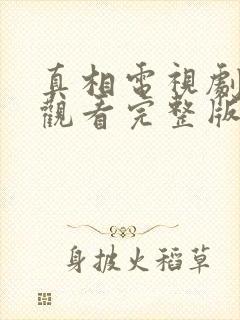 真相電視劇
觀看完整版
身披火稻草